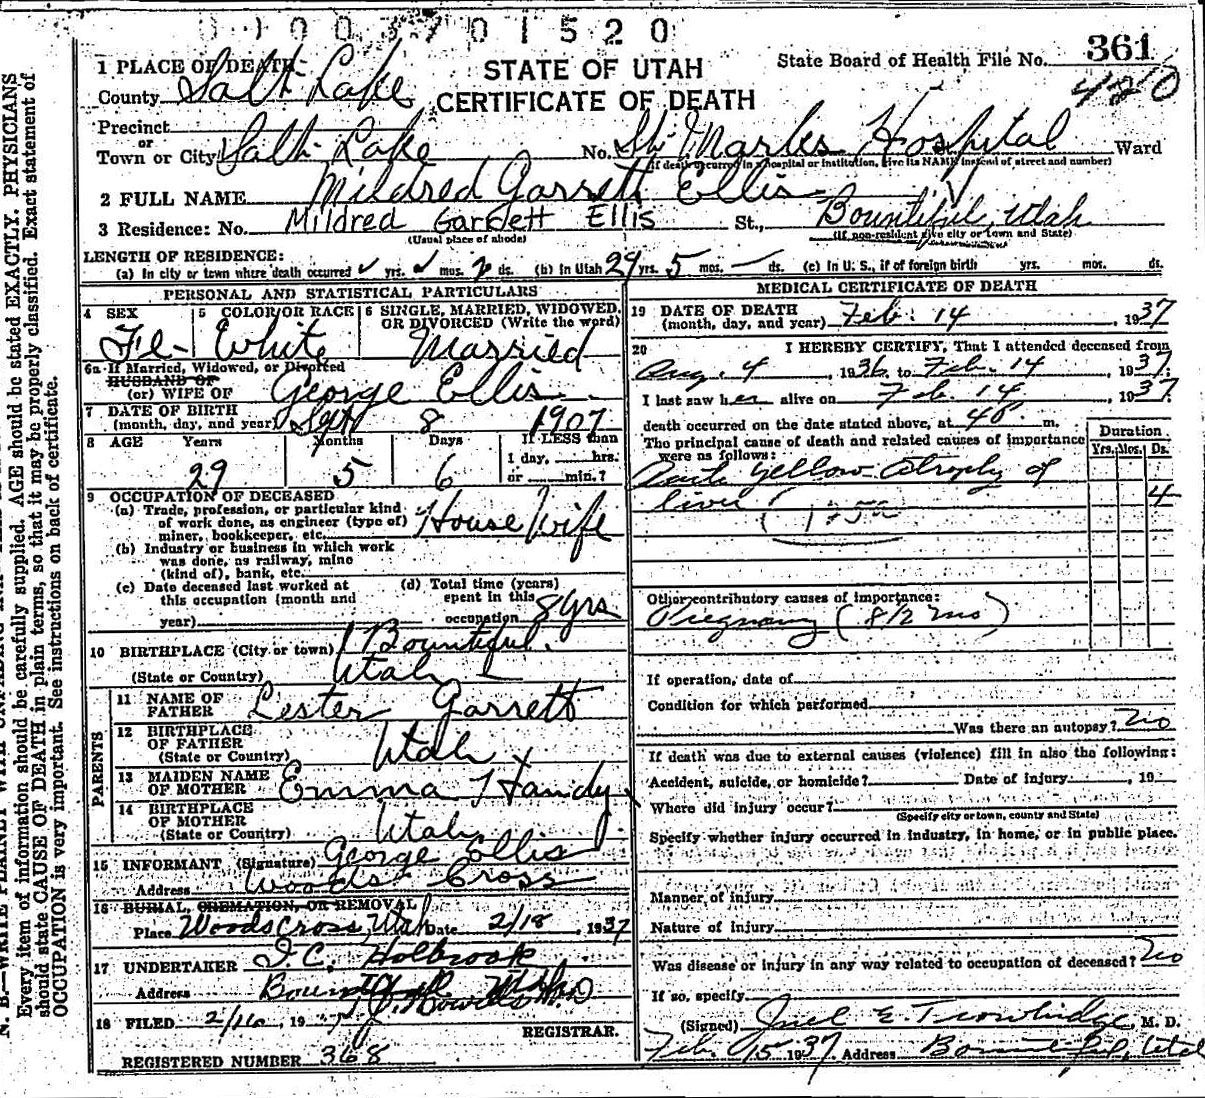 0 1 0 0 3 7 0 1 5 2 0
361
420
STATE OF UTAH
CERTIFICATE OF DEATH
State Board of Health File No.
1 PLACE OF DEATH
County Salt Lake
Precinct
or
Town or City Salt Lake No. St. Marks Hospital Ward
(If death occurred in a hospital or institution, give its NAME instead of street and number)
2 FULL NAME Mildred Garrett Ellis
3 Residence: No. Mildred Garrett Ellis St., Bountiful, Utah
(Usual place of abode) (If non-resident give city or town and State)
LENGTH OF RESIDENCE:
(a) In city or town where death occurred yrs. mos. 2 ds. (b) In Utah 29 yrs. 5 mos. — ds. (c) In U. S., if of foreign birth yrs. mos. ds.
PERSONAL AND STATISTICAL PARTICULARS
4 SEX 5 COLOR OR RACE 6 SINGLE, MARRIED, WIDOWED, OR DIVORCED (Write the word)
Fe- White Married
6a If Married, Widowed, or Divorced
HUSBAND OF
(or) WIFE OF George Ellis
7 DATE OF BIRTH
(month, day, and year) Sept 8 1907
8 AGE Years Months Days If LESS than
29 5 6 1 day, hrs.
or min.?
9 OCCUPATION OF DECEASED
(a) Trade, profession, or particular kind
of work done, as engineer (type of)
miner, bookkeeper, etc. House Wife
(b) Industry or business in which work
was done, as railway, mine
(kind of), bank, etc.
(c) Date deceased last worked at
this occupation (month and
year)
(d) Total time (years)
spent in this
occupation 8 yrs
10 BIRTHPLACE (City or town) Bountiful
(State or Country) Utah
PARENTS
11 NAME OF
FATHER Lester Garrett
12 BIRTHPLACE
OF FATHER
(State or Country) Utah
13 MAIDEN NAME
OF MOTHER Emma Handy
14 BIRTHPLACE
OF MOTHER
(State or Country) Utah
15 INFORMANT (Signature) George Ellis
Address Woods Cross
16 BURIAL, CREMATION, OR REMOVAL
Place Woods Cross, Utah Date 2/18, 1937
17 UNDERTAKER Holbrook
Address Bountiful Utah
18 FILED 2/16, 19 M.D
REGISTRAR.
REGISTERED NUMBER 368
MEDICAL CERTIFICATE OF DEATH
19 DATE OF DEATH
(month, day, and year) Feb. 14, 1937
20 I HEREBY CERTIFY, That I attended deceased from
Aug. 4, 1936, to Feb. 14, 1937.
I last saw her alive on Feb. 14, 1937
death occurred on the date stated above, at m.
The principal cause of death and related causes of importance
were as follows:
Duration
Yrs. Mos. Ds.
Acute Yellow Atrophy of
liver 4
Other contributory causes of importance:
Pregnancy (8 1/2 mo)
If operation, date of
Condition for which performed
Was there an autopsy? no
If death was due to external causes (violence) fill in also the following:
Accident, suicide, or homicide? Date of injury , 19
Where did injury occur?
(Specify city or town, county and State)
Specify whether injury occurred in industry, in home, or in public place.
Manner of injury
Nature of injury
Was disease or injury in any way related to occupation of deceased? no
If so, specify
(Signed) E. Trowbridge, M. D.
Feb. 15 1937 Address Bountiful, Utah
Every item of information should be carefully supplied. AGE should be stated EXACTLY. PHYSICIANS
should state CAUSE OF DEATH in plain terms, so that it may be properly classified. Exact statement of
OCCUPATION is very important. See instructions on back of certificate.